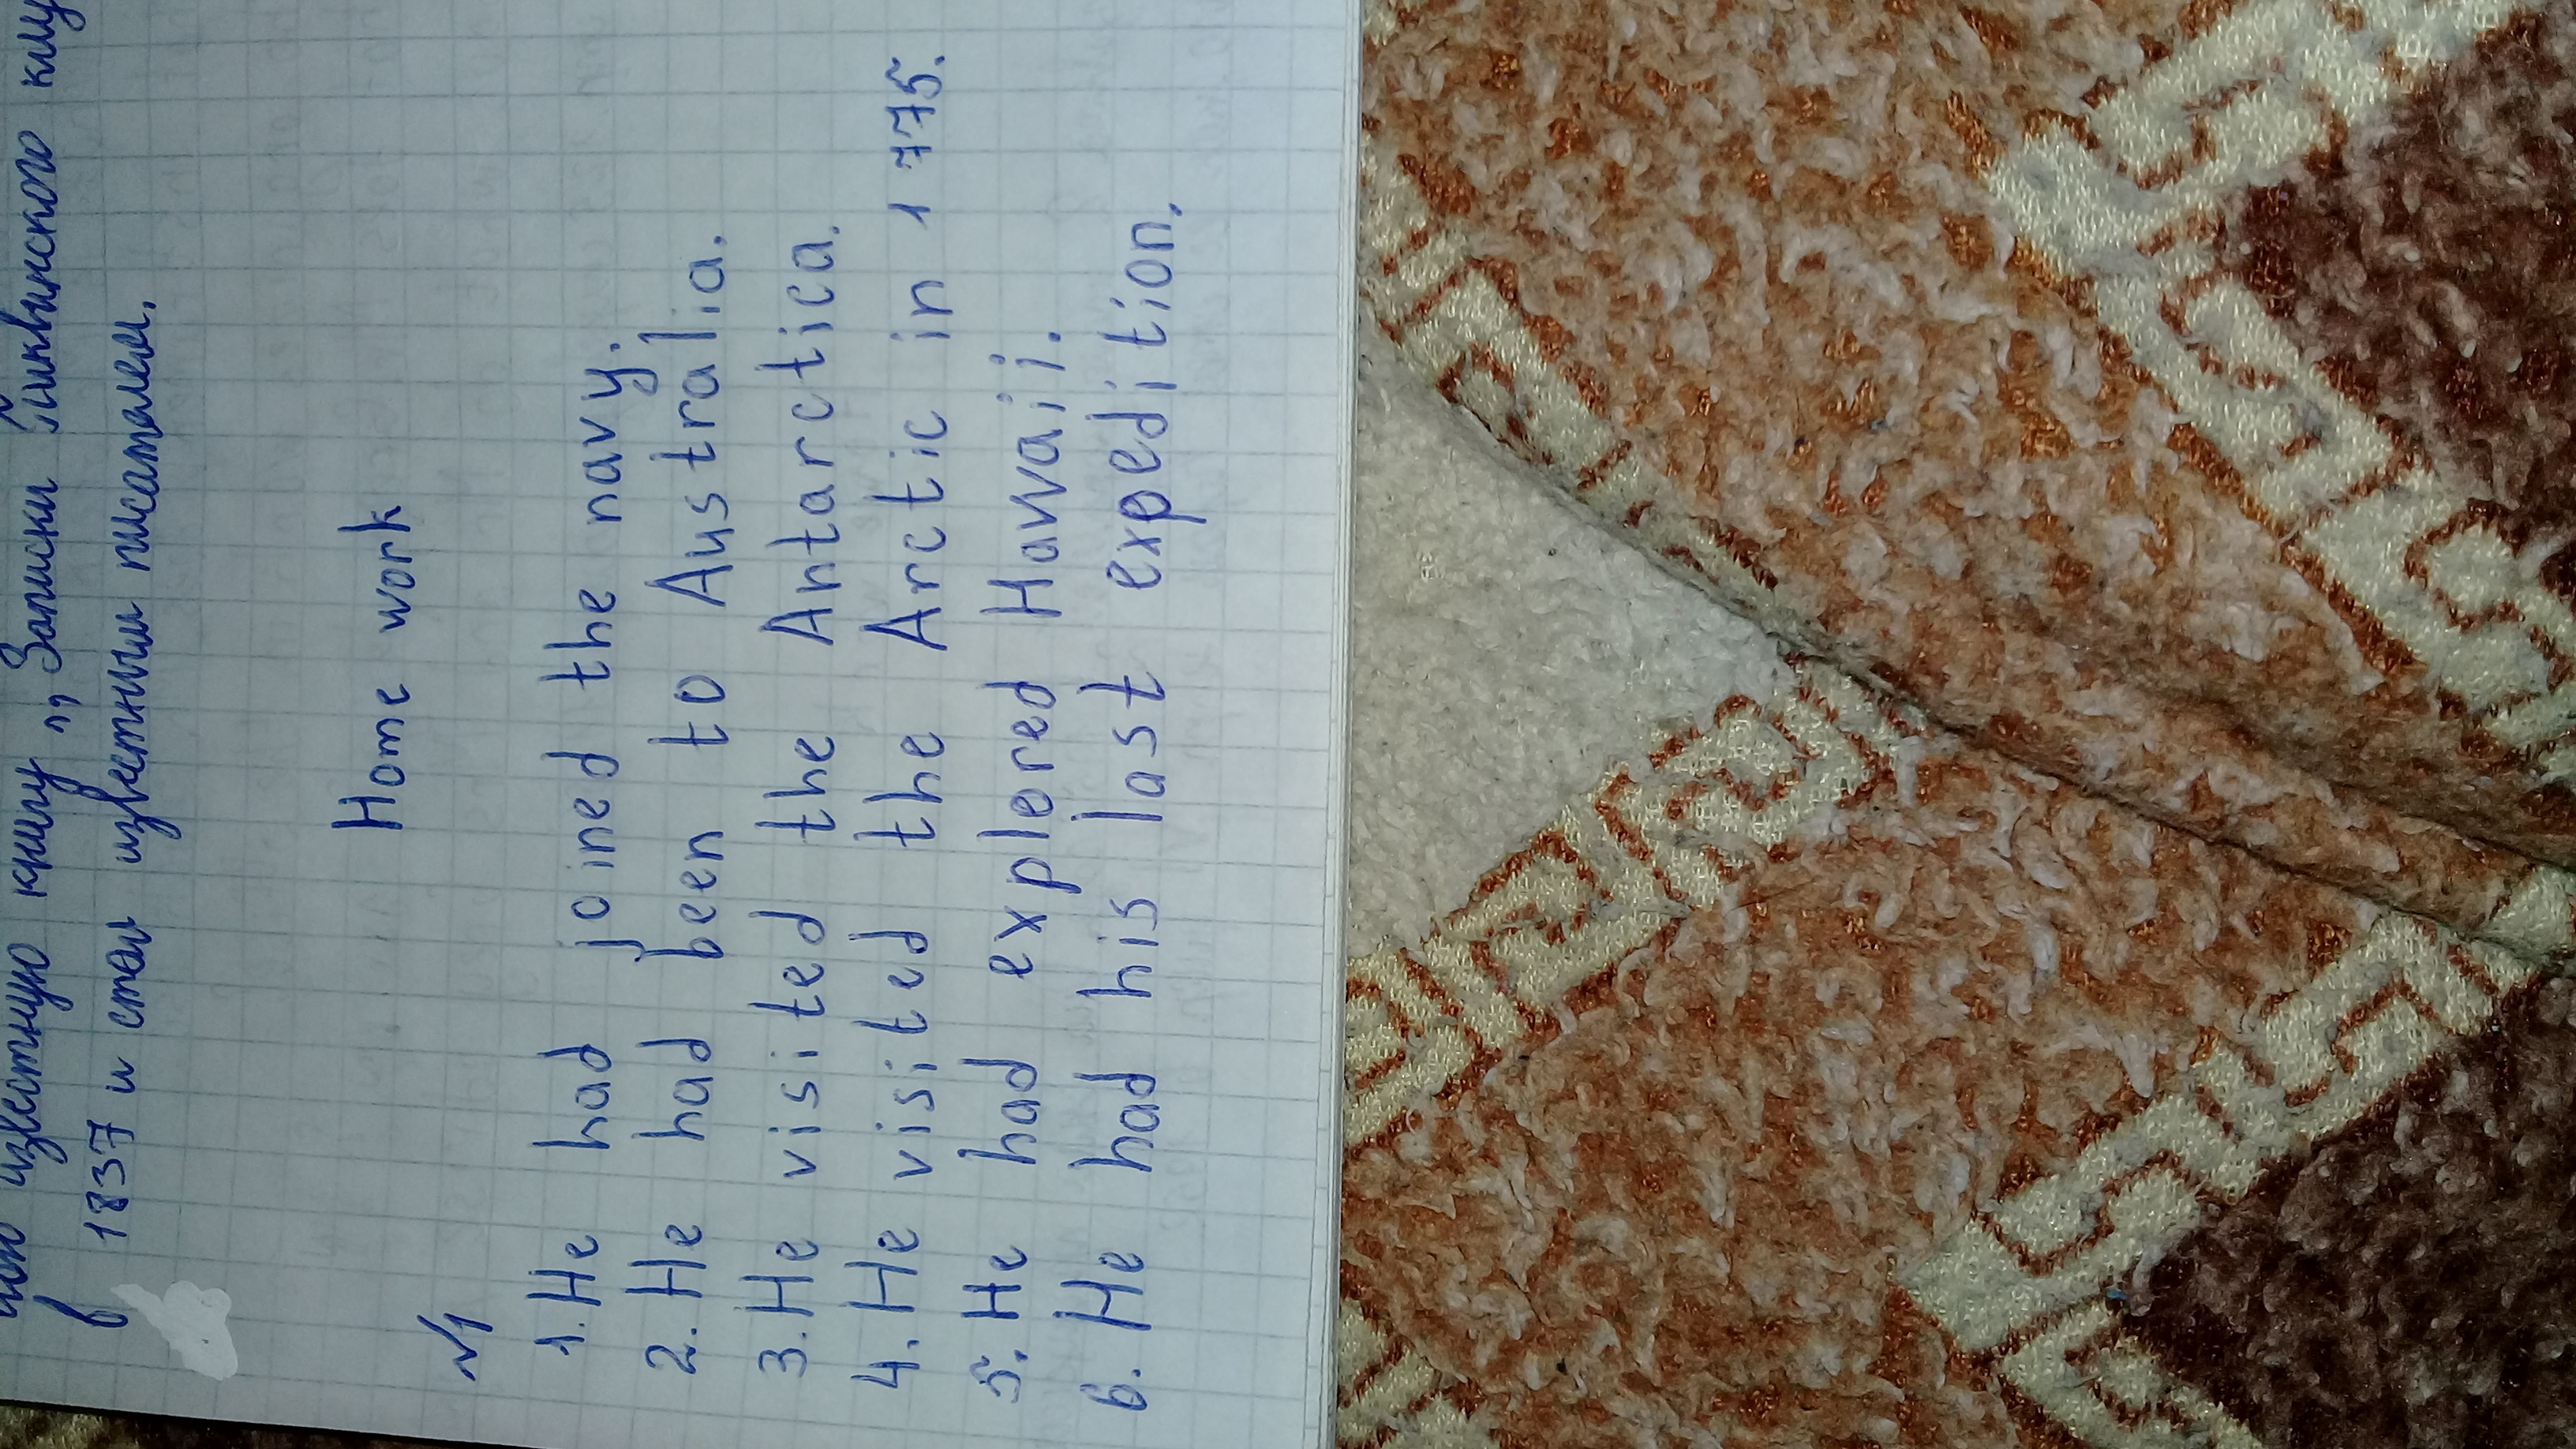 известную книгу „Записки Пиквикского клу
в 1837 и стал известным писателем.
Home work
№1
1. He had joined the navy.
2. He had been to Australia.
3. He visited the Antarctica.
4. He visited the Arctic in 1775.
5. He had explered Hawaii.
6. He had his last expedition.